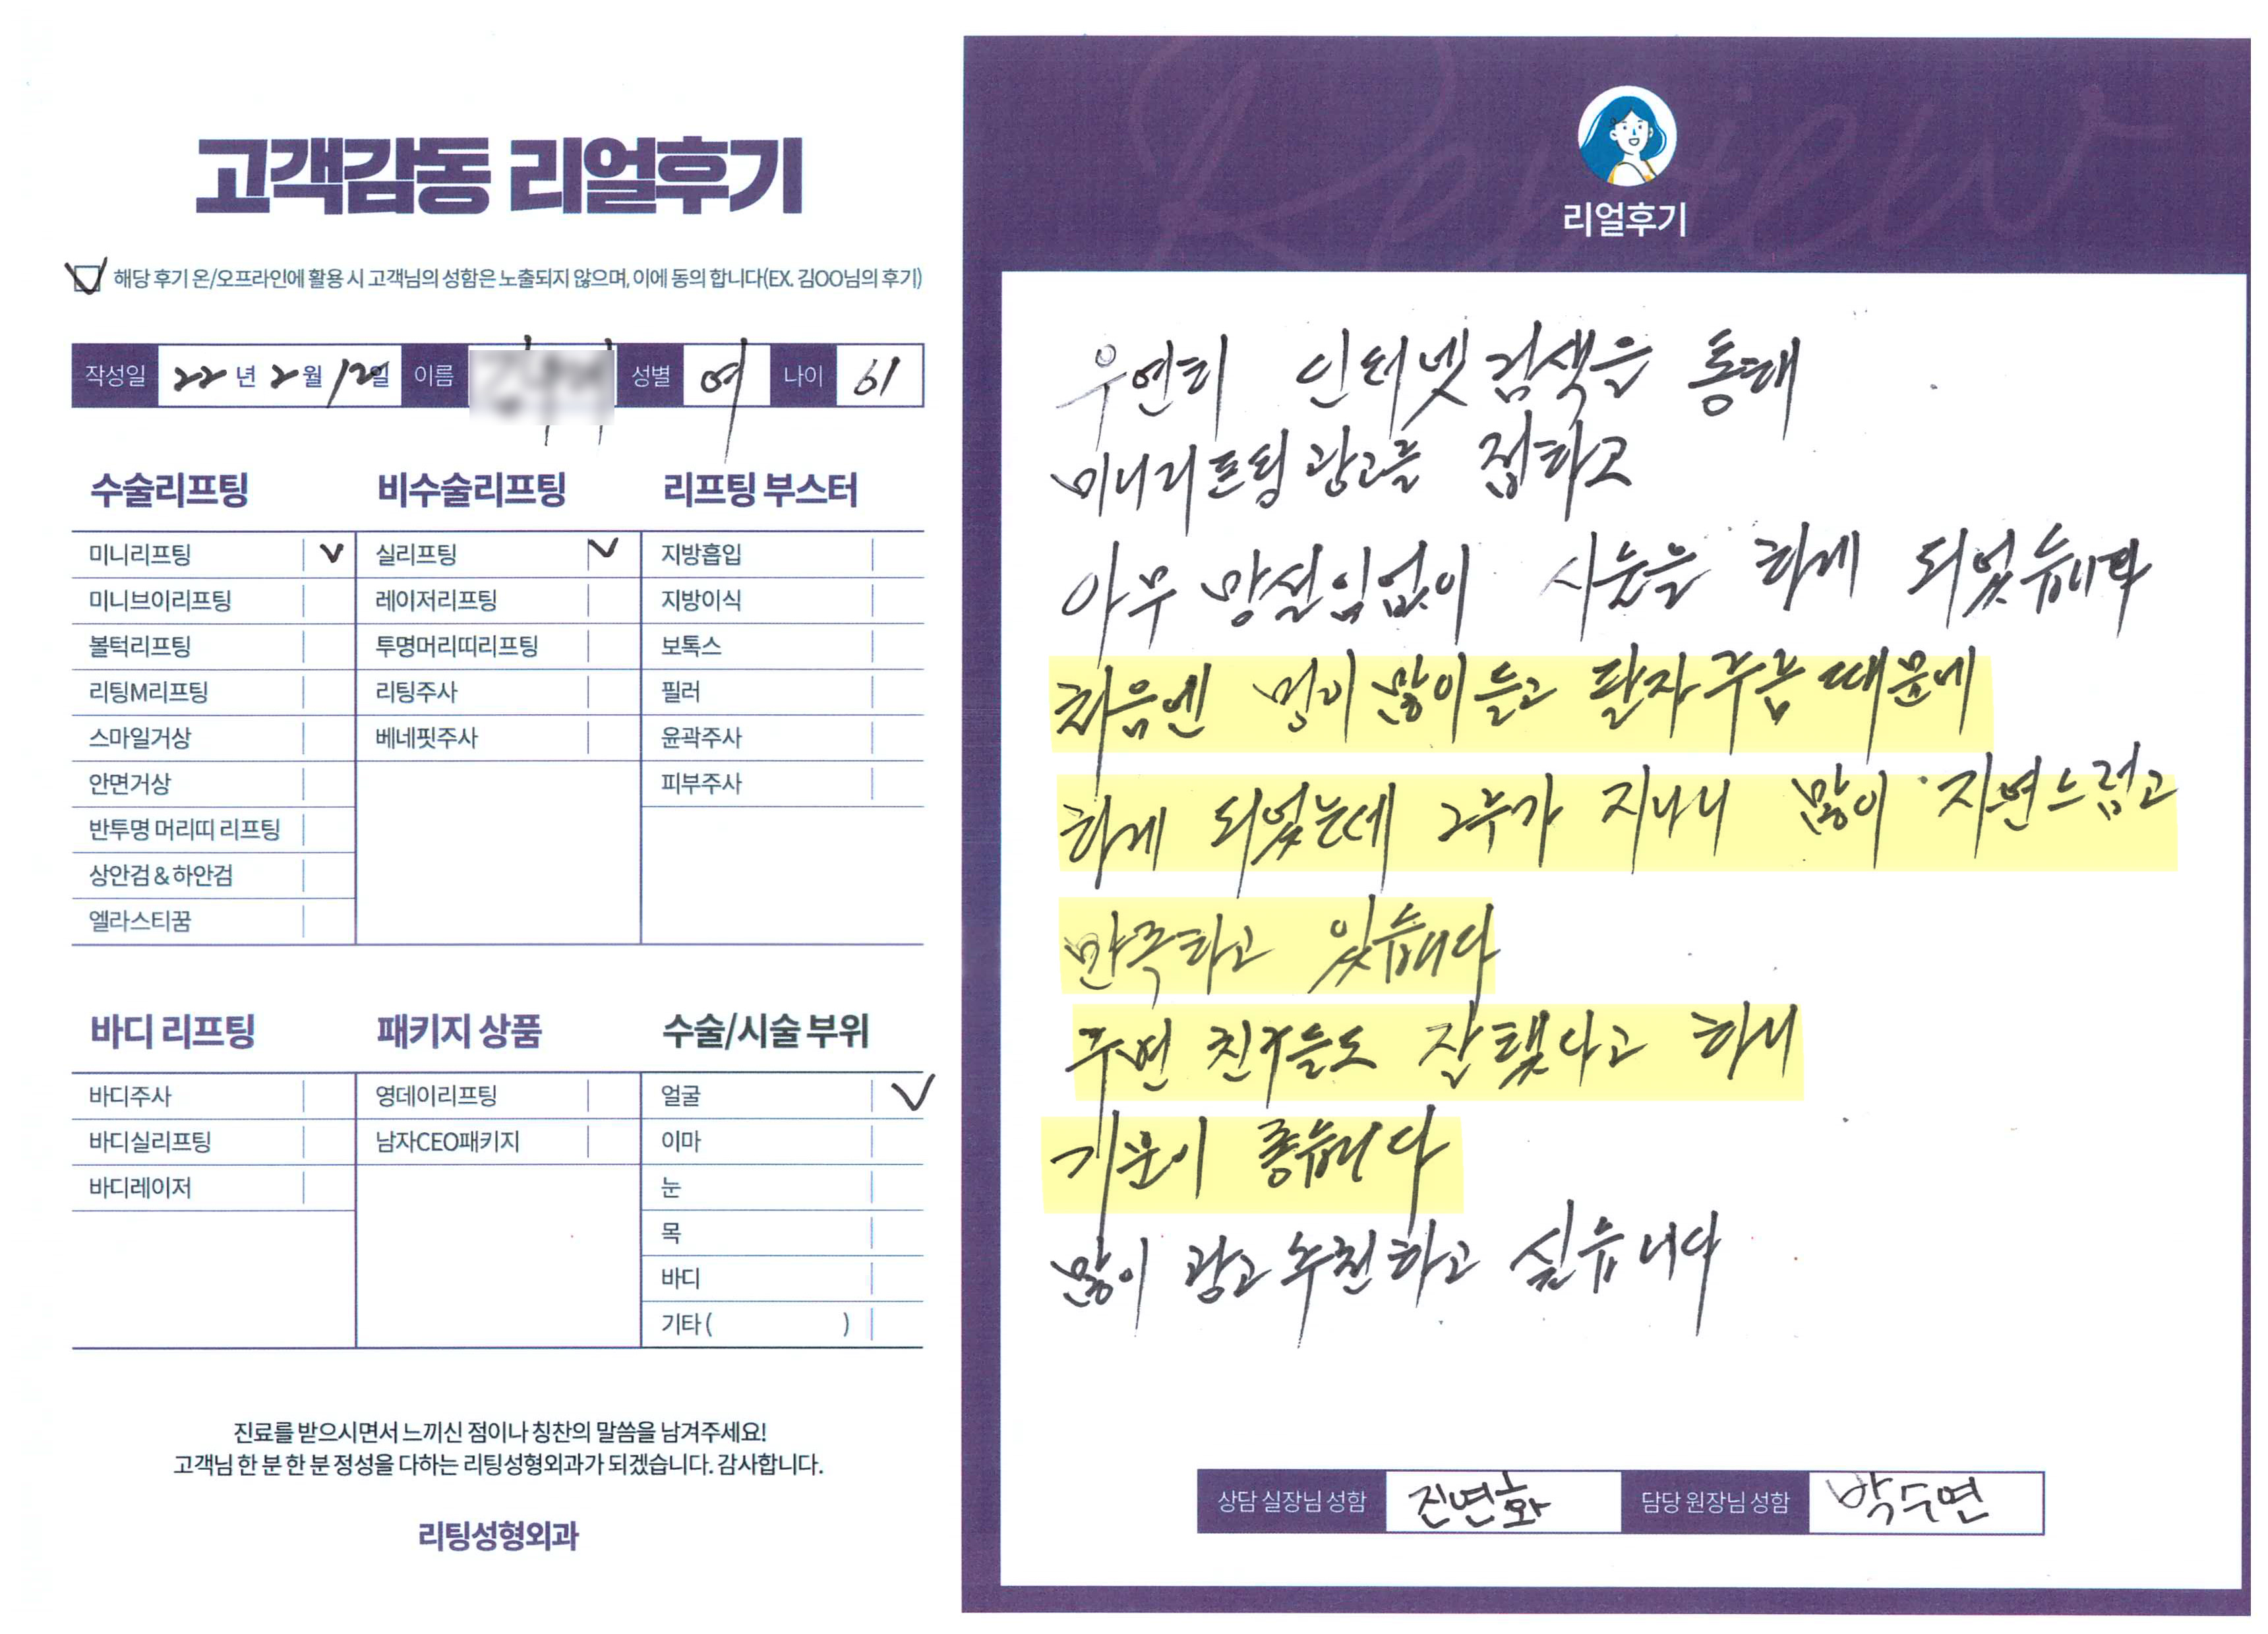 고객감동 리얼후기
해당 후기 온/오프라인에 활용 시 고객님의 성함은 노출되지 않으며, 이에 동의 합니다(EX. 김OO님의 후기)
작성일 22년 2월 12일 이름 성별 여 나이 61
수술리프팅
미니리프팅
미니브이리프팅
볼턱리프팅
리팅M리프팅
스마일거상
안면거상
반투명 머리띠 리프팅
상안검 & 하안검
엘라스티꿈
비수술리프팅
실리프팅
레이저리프팅
투명머리띠리프팅
리팅주사
베네핏주사
리프팅 부스터
지방흡입
지방이식
보톡스
필러
윤곽주사
피부주사
바디 리프팅
바디주사
바디실리프팅
바디레이저
패키지 상품
영데이리프팅
남자CEO패키지
수술/시술 부위
얼굴
이마
눈
목
바디
기타 ( )
진료를 받으시면서 느끼신 점이나 칭찬의 말씀을 남겨주세요!
고객님 한 분 한 분 정성을 다하는 리팅성형외과가 되겠습니다. 감사합니다.
리팅성형외과
Review
리얼후기
우연히 인터넷 검색을 통해
미니리프팅 광고를 접하고
아무 망설임없이 시술을 하게 되었습니다
처음엔 멍이 많이 들고 팔자주름 때문에
하게 되었는데 2주가 지나니 많이 자연스럽고
만족하고 있습니다
주변 친구들도 잘 됐다고 하니
기분이 좋습니다
많이 광고 추천하고 싶습니다
상담 실장님 성함 진연화 담당 원장님 성함 박수연